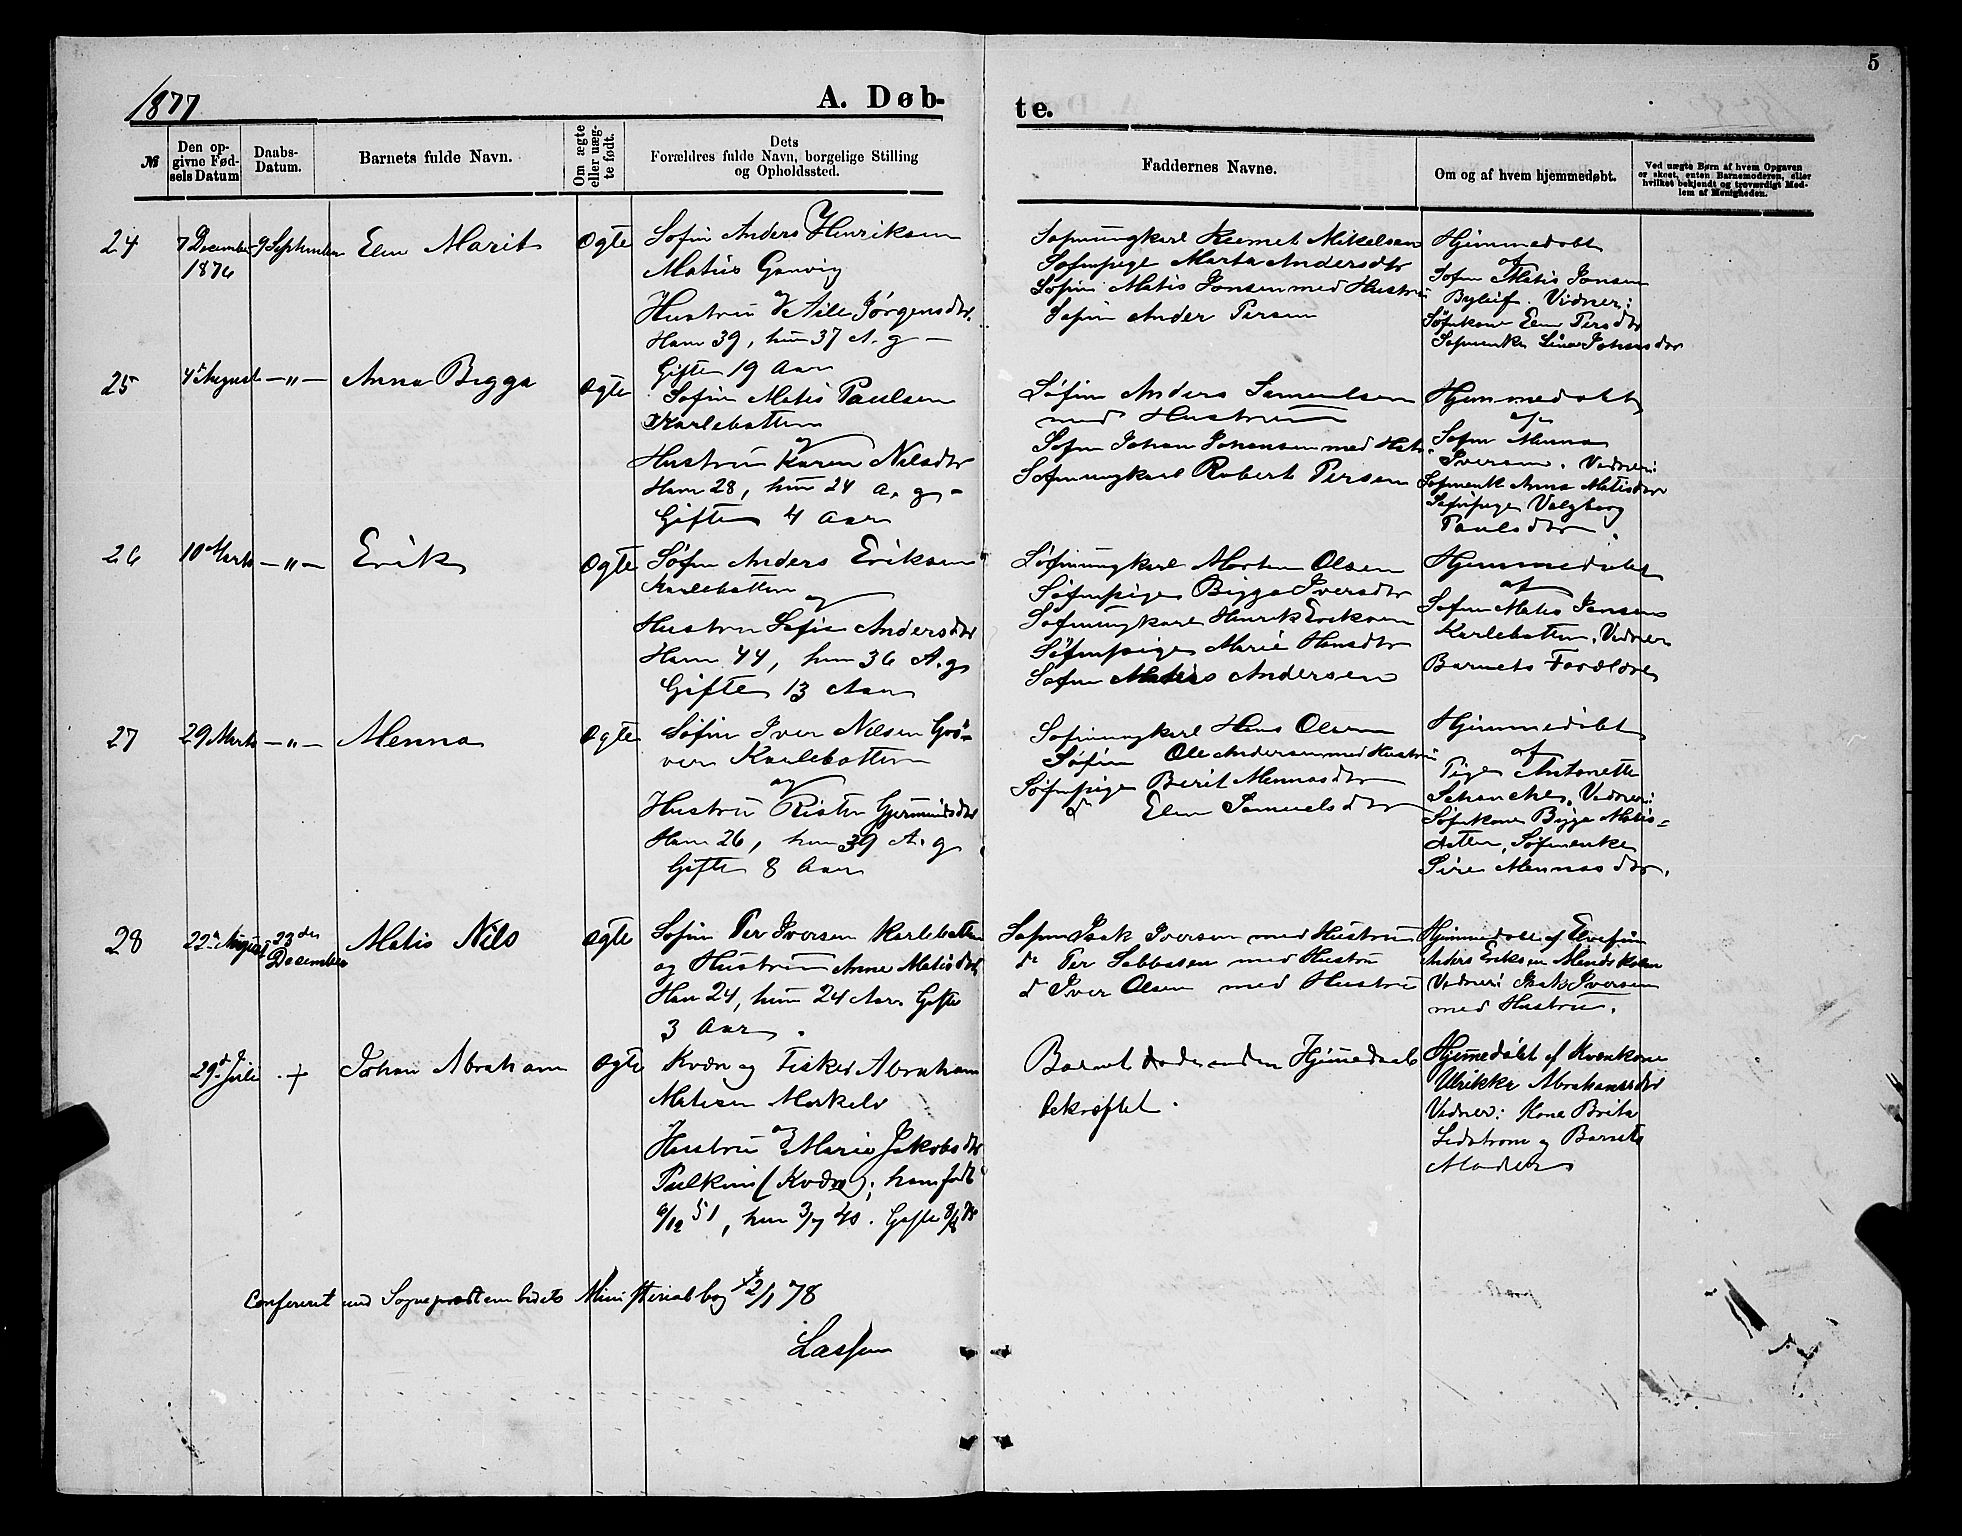 5
1877
A. Døb-
te.
№
Den op-
givne Fød-
sels Datum
Daabs-
Datum.
Barnets fulde Navn.
Om ægte
eller uæg-
te født.
Dets
Forældres fulde Navn, borgelige Stilling
og Opholdssted.
Faddernes Navne.
Om og af hvem hjemmedøbt.
Ved uægte Børn af hvem Opgaven
er skeet, enten Barnemoderen, eller
hvilket bekjendt og troværdigt Med-
lem af Menigheden.
24
7 December
1876
9 September
Elen Marit
Ogte
Søfin Anders Henriksen
Matius
og
Hustru Jørgensdtr.
Ham 39, hun 37 A. g —
Gifte 19 Aar
Søfinungkarl Mikelsen
Søfinpige Marta Andersdtr
Søfin Matis Jonsen med Hustru
Søfin Ander Persen
Hjemmedøbt
af
Søfin Matis Jonsen
Vidner:
Søfinkone Elen Persdtr
Søfinenke
25
4de August
— " —
Anna Bigga
Ogte
Søfin Matis Paulsen
Karlebotten
og
Hustru Karen Nilsdtr
Ham 28, hun 24 A. g —
Gifte 4 Aar
Søfin Anders Samuelsen
med Hustru
Søfin Johan Johansen med Hustr.
Søfinungkarl Robert Persen
Hjemmedøbt
af
Søfin Menna
Iversen. Vidner:
Søfinenk Anna Matisdtr
Søfinpige Valgborg
Paulsdtr.
26
10 Marts
— " —
Erik
Ogte
Søfin Anders Eriksen
Karlebotten
og
Hustru Sofie Andersdtr
Ham 44, hun 36 A. g
Gifte 13 Aar
Søfinungkarl Morten Olsen
Søfinpige Bigga Iversdtr
Søfinungkarl Henrik Eriksen
Søfinpige Marie Hansdtr
Søfin Matis Andersen
Hjemmedøbt
af
Søfin Matis Jonsen
Karlebotten, Vidner
Barnets Forældre
27
29 Marts
— " —
Menna
Ogte
Søfin Iver Nilsen
Karlebotten
og
Hustru Risten Gjermundsdtr
Ham 26, hun 39 A. g
Gifte 8 Aar
Søfinungkarl Hans Olsen
Søfin Ole Andersen med Hustru
Søfinpige Berit Mennasdtr
do Elen Samuelsdtr
Hjemmedøbt
af
Pige Antonette
Schanche, Vidner:
Søfinkone Bigga Matis-
datter, Søfinenke
Sire Mennasdtr.
28
22de August
23den
December
Matis Nils
Ogte
Søfin Per Iversen Karlebotten
og Hustru Anne Matisdtr
Han 24, hun 24 Aar. Gifte
3 Aar.
Søfin Isak Iversen med Hustru
do Per Sabbasen med Hustru
d Iver Olsen med Hustru
Hjemmedøbt af Elvefin
Anders Eriksen
Vidner: Isak Iversen
med Hustru.
29de Juli
+
Johan Abraham
Ogte
Kvæn og Fisker Abraham
Matisen
og
Hustru Marie Jakobsdtr
(Kvæn); ham født
6/12 51, hun 3/7 40. Gifte
Barnet døde inden Hjemmedaab
bekræftet.
Hjemmedøbt af Kvænkone
Ulrikke Abrahamsdtr
Vidner: Kone Brita
og Barnets
Moder
Confereret med Sognepræstembedets Ministerialbog 12/1 78
Lassen